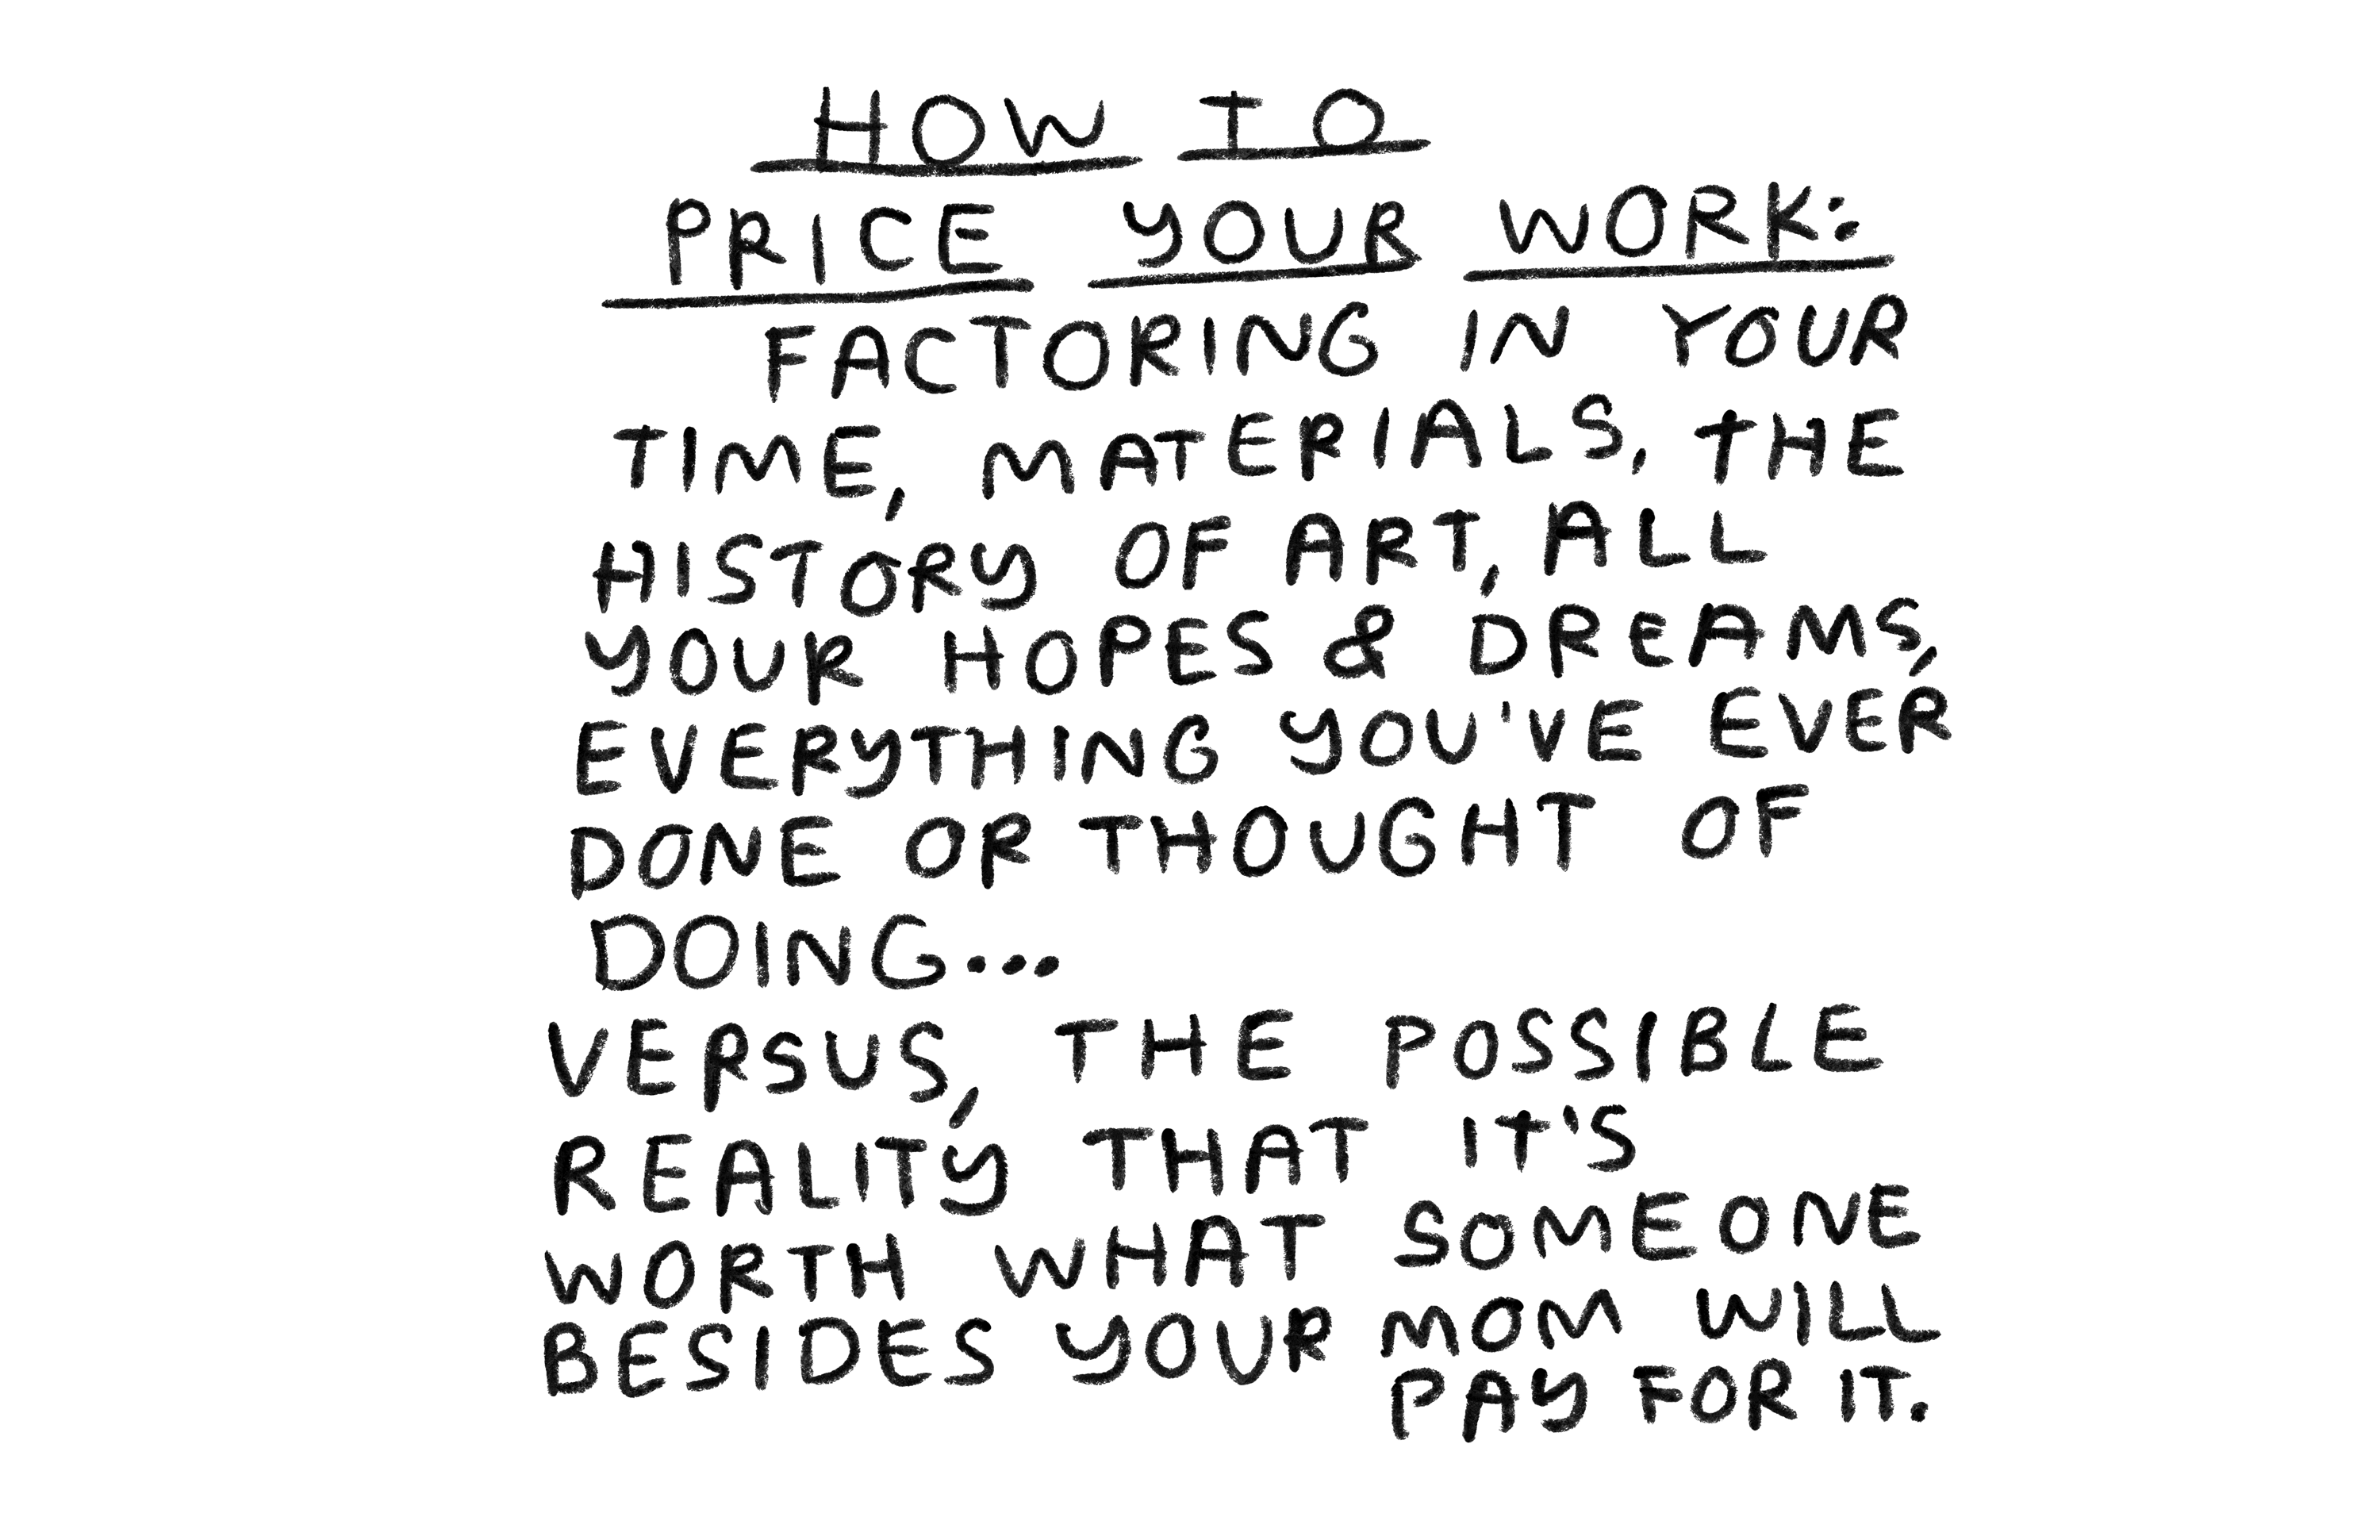 HOW TO
PRICE YOUR WORK:
FACTORING IN YOUR
TIME, MATERIALS, THE
HISTORY OF ART, ALL
YOUR HOPES & DREAMS,
EVERYTHING YOU'VE EVER
DONE OR THOUGHT OF
DOING...
VERSUS, THE POSSIBLE
REALITY THAT IT'S
WORTH WHAT SOMEONE
BESIDES YOUR MOM WILL
PAY FOR IT.